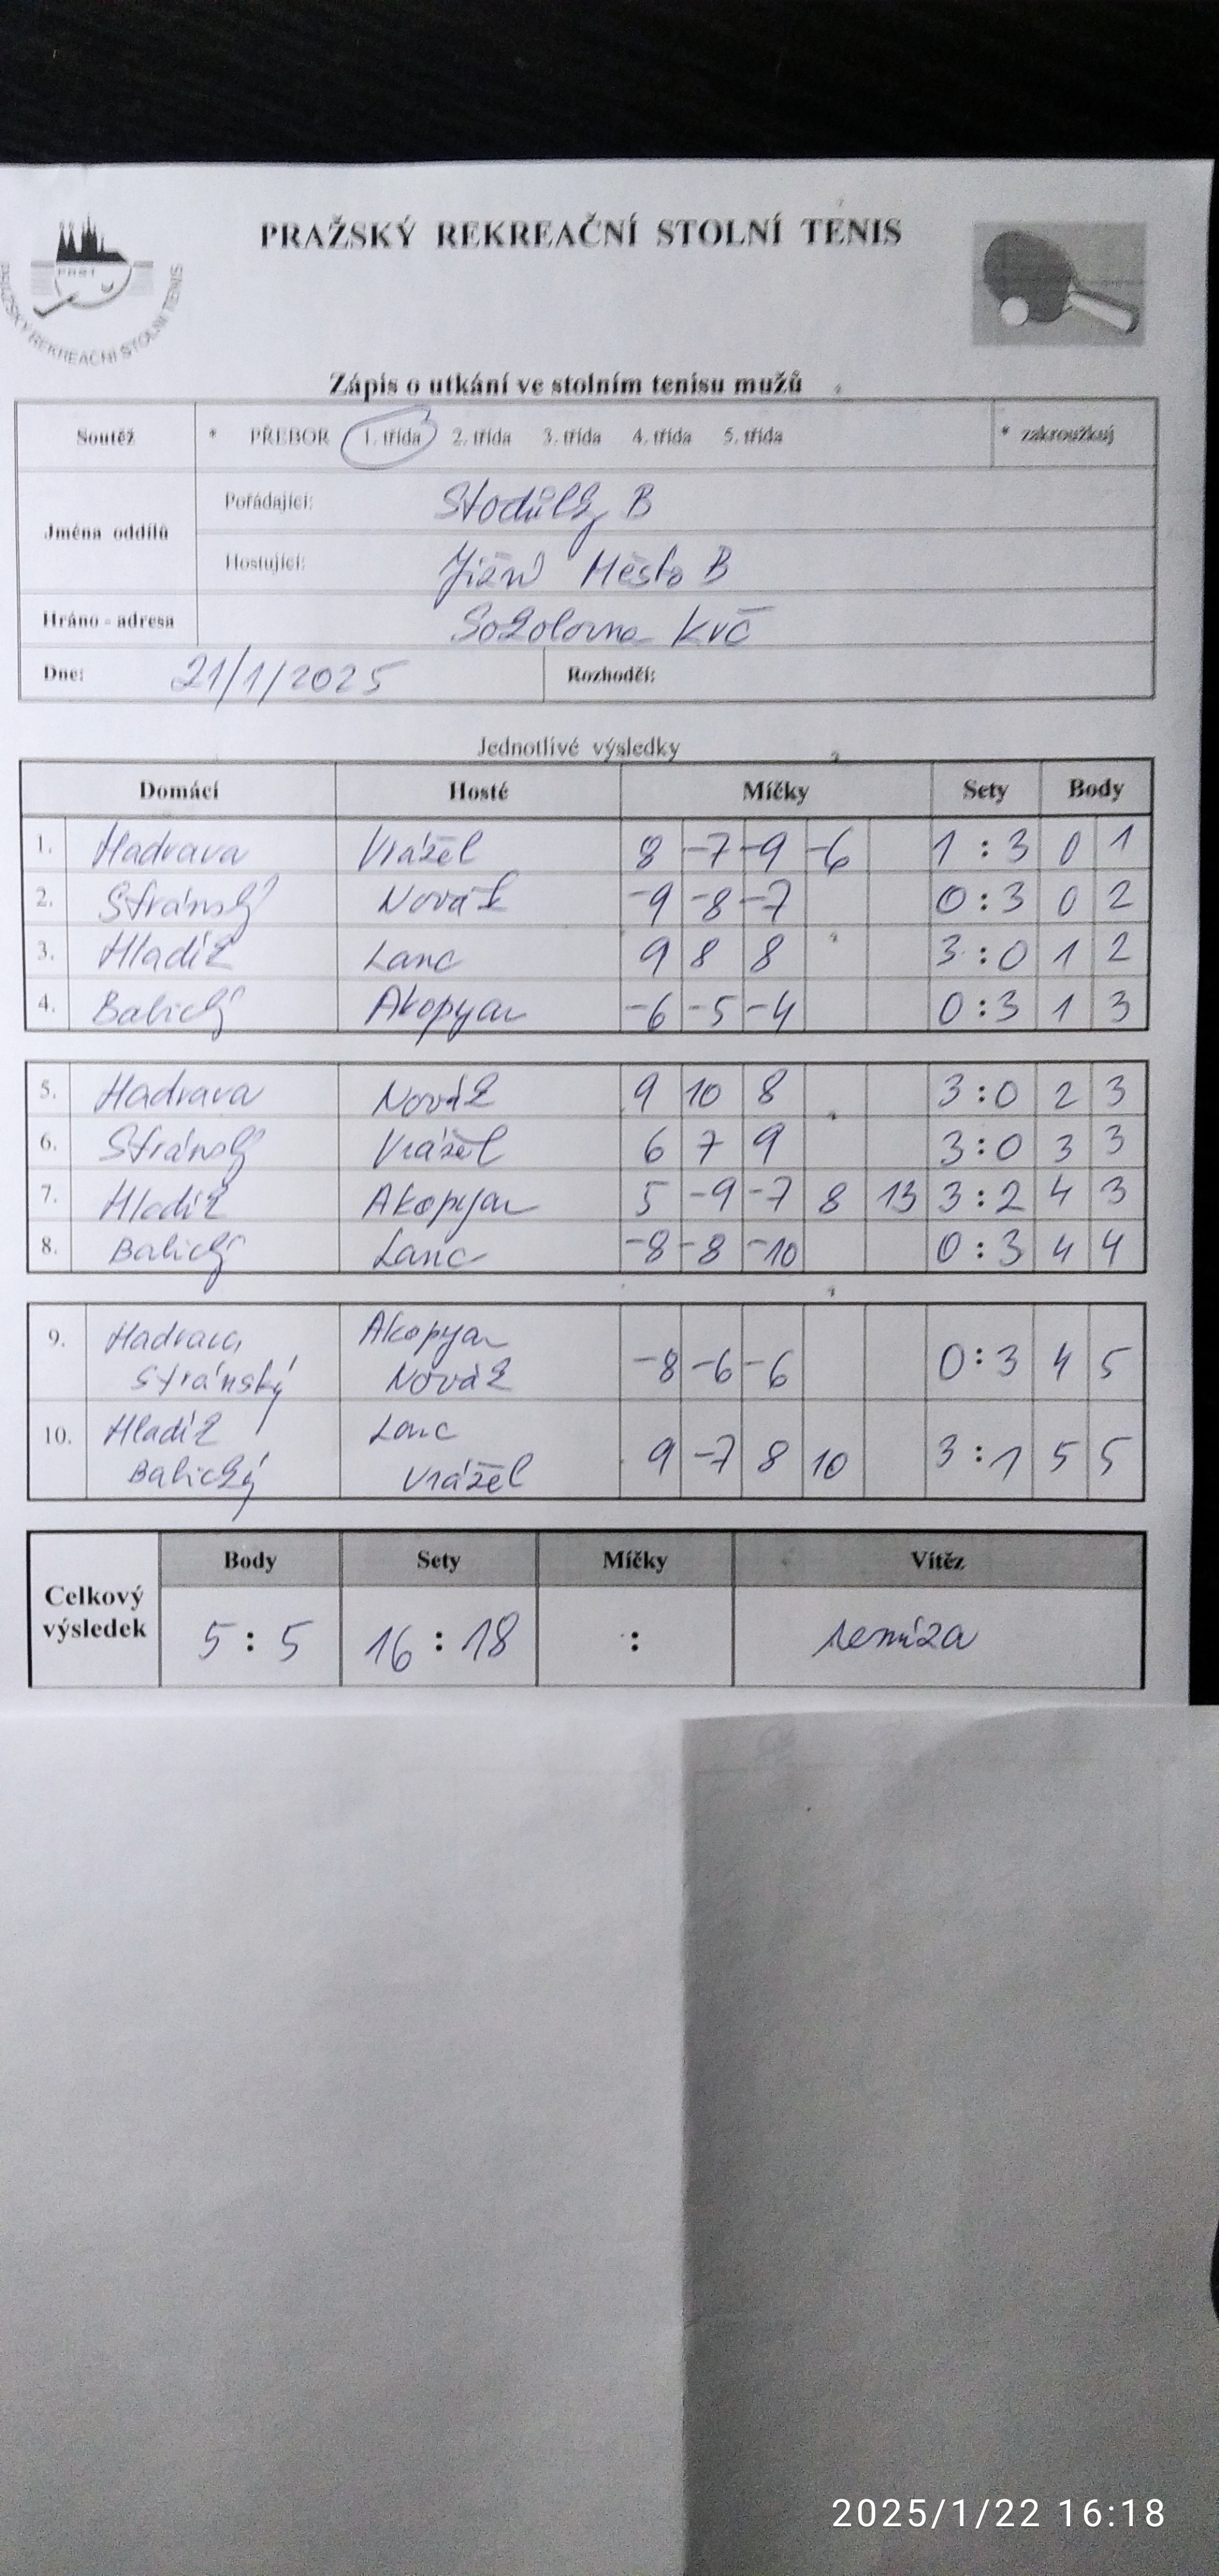 PRAŽSKÝ REKREAČNÍ STOLNÍ TENIS
PRST
PRAŽSKÝ REKREAČNÍ STOLNÍ TENIS
Zápis o utkání ve stolním tenisu mužů
Soutěž * PŘEBOR 1. třída 2. třída 3. třída 4. třída 5. třída * zakroužkuj
Jména oddílů
Pořádající: Stodůlky B
Hostující: Jižní Město B
Hráno - adresa Sokolovna KVČ
Dne: 21/1/2025 Rozhodčí:
Jednotlivé výsledky
Domácí Hosté Míčky Sety Body
1. Hadrava Vrážel 8 -7 -9 -6 1 : 3 0 1
2. Stránský Novák -9 -8 -7 0 : 3 0 2
3. Hladík Lanc 9 8 8 3 : 0 1 2
4. Balický Akopyan -6 -5 -4 0 : 3 1 3
5. Hadrava Novák 9 10 8 3 : 0 2 3
6. Stránský Vrážel 6 7 9 3 : 0 3 3
7. Hladík Akopyan 5 -9 -7 8 13 3 : 2 4 3
8. Balický Lanc -8 -8 -10 0 : 3 4 4
9. Hadrava Akopyan
Stránský Novák -8 -6 -6 0 : 3 4 5
10. Hladík Lanc
Balický Vrážel 9 -7 8 10 3 : 1 5 5
Celkový výsledek
Body Sety Míčky Vítěz
5 : 5 16 : 18 : remíza
2025/1/22 16:18